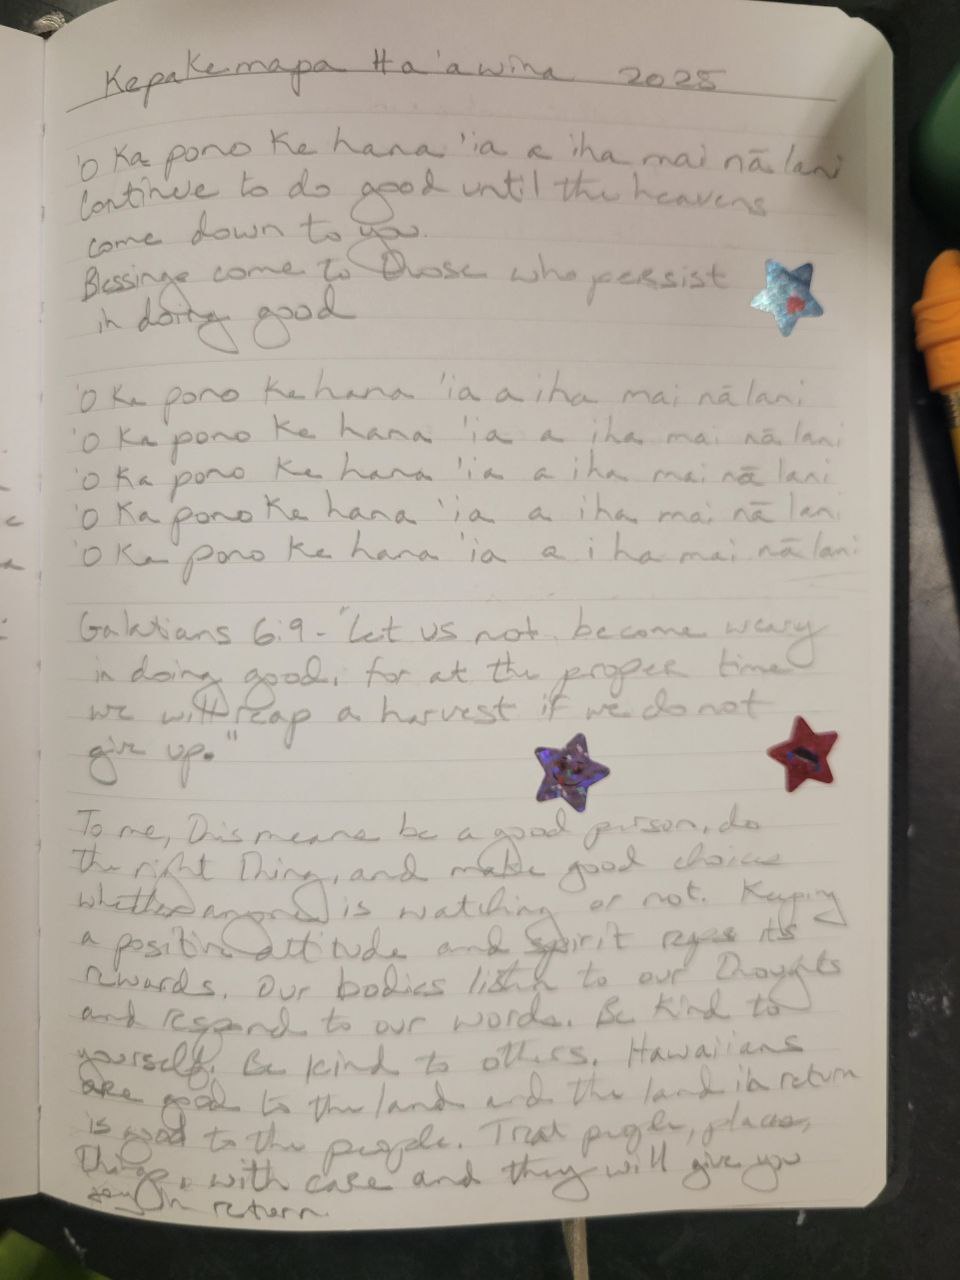 Kepakemapa Ha'awina 2025
'O ka pono ke hana 'ia a iha mai nā lani
Continue to do good until the heavens
come down to you.
Blessings come to those who persist
in doing good
'O ka pono ke hana 'ia a iha mai nā lani
'O ka pono ke hana 'ia a iha mai nā lani
'O ka pono ke hana 'ia a iha mai nā lani
'O ka pono ke hana 'ia a iha mai nā lani
'O ka pono ke hana 'ia a iha mai nā lani
Galatians 6:9 - "Let us not become weary
in doing good, for at the proper time
we will reap a harvest if we do not
give up."
To me, this means be a good person, do
the right thing, and make good choices
whether anyone is watching or not. Keeping
a positive attitude and spirit reaps its
rewards. Our bodies listen to our thoughts
and respond to our words. Be kind to
yourself. Be kind to others. Hawaiians
are good to the land and the land in return
is good to the people. Treat people, places,
things, with care and they will give you
in return.